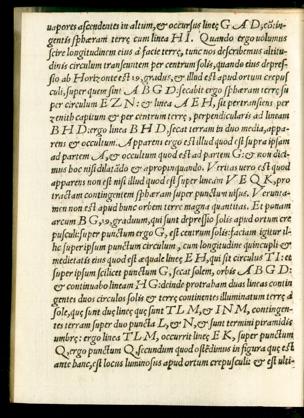 uapores ascendentes in altum, & occursus lineę G A D, cōtingentis
sphęram terrę cum linea H I. Quando ergo uolumus
scire longitudinem eius à facie terrę, tunc nos describemus altitudinis
circulum transeuntem per centrum solis, quando eius depressio
ab Horizonte est 19, gradus, & illud est apud ortum crepusculi,
super quem sint A B G D: secabit ergo sphęram terrę super
circulum E Z N: & linea A E H, sit pertransiens per
zenith capitum & per centrum terrę, perpendicularis ad lineam
B H D: ergo linea B H D, secat terram in duo media, apparens
& occultum. Apparens ergo est illud quod est supra ipsam
ad partem A, & occultum quod est ad partem G: & non dicimus
hoc nisi dilatādo & apropinquando. Veritas uero est quod
apparens non est nisi illud quod est super lineam V E Q K, protractam
contingentem sphęram super punctum uisus. Veruntamen
non est apud hunc orbem terrę magna quantitas. Et ponam
arcum B G, 19, graduum, qui sunt depressio solis apud ortum crepusculi:
super punctum ergo G, est centrum solis: faciam igitur illhc
super ipsum punctum circulum, cum longitudine quincupli &
medietatis eius quod est æquale lineę E H, qui sit circulus T I: et
super ipsum scilicet punctum G, secat solem, orbis A B G D:
& continuabo lineam H G: deinde protrabam duas lineas contingentes
duos circulos solis & terrę continentes illuminatum terrę à
sole, que sunt duę lineę quę sunt T L M, & I N M, contingentes
terram super duo puncta L, & N, & sunt termini piramidis
umbrę: ergo linea T L M, occurrit lineę E K, super punctum
Q, ergo punctum Q, secundum quod ostēdimus in figura que est
ante hanc, est locus luminosus apud ortum crepusculi: & est ulti-